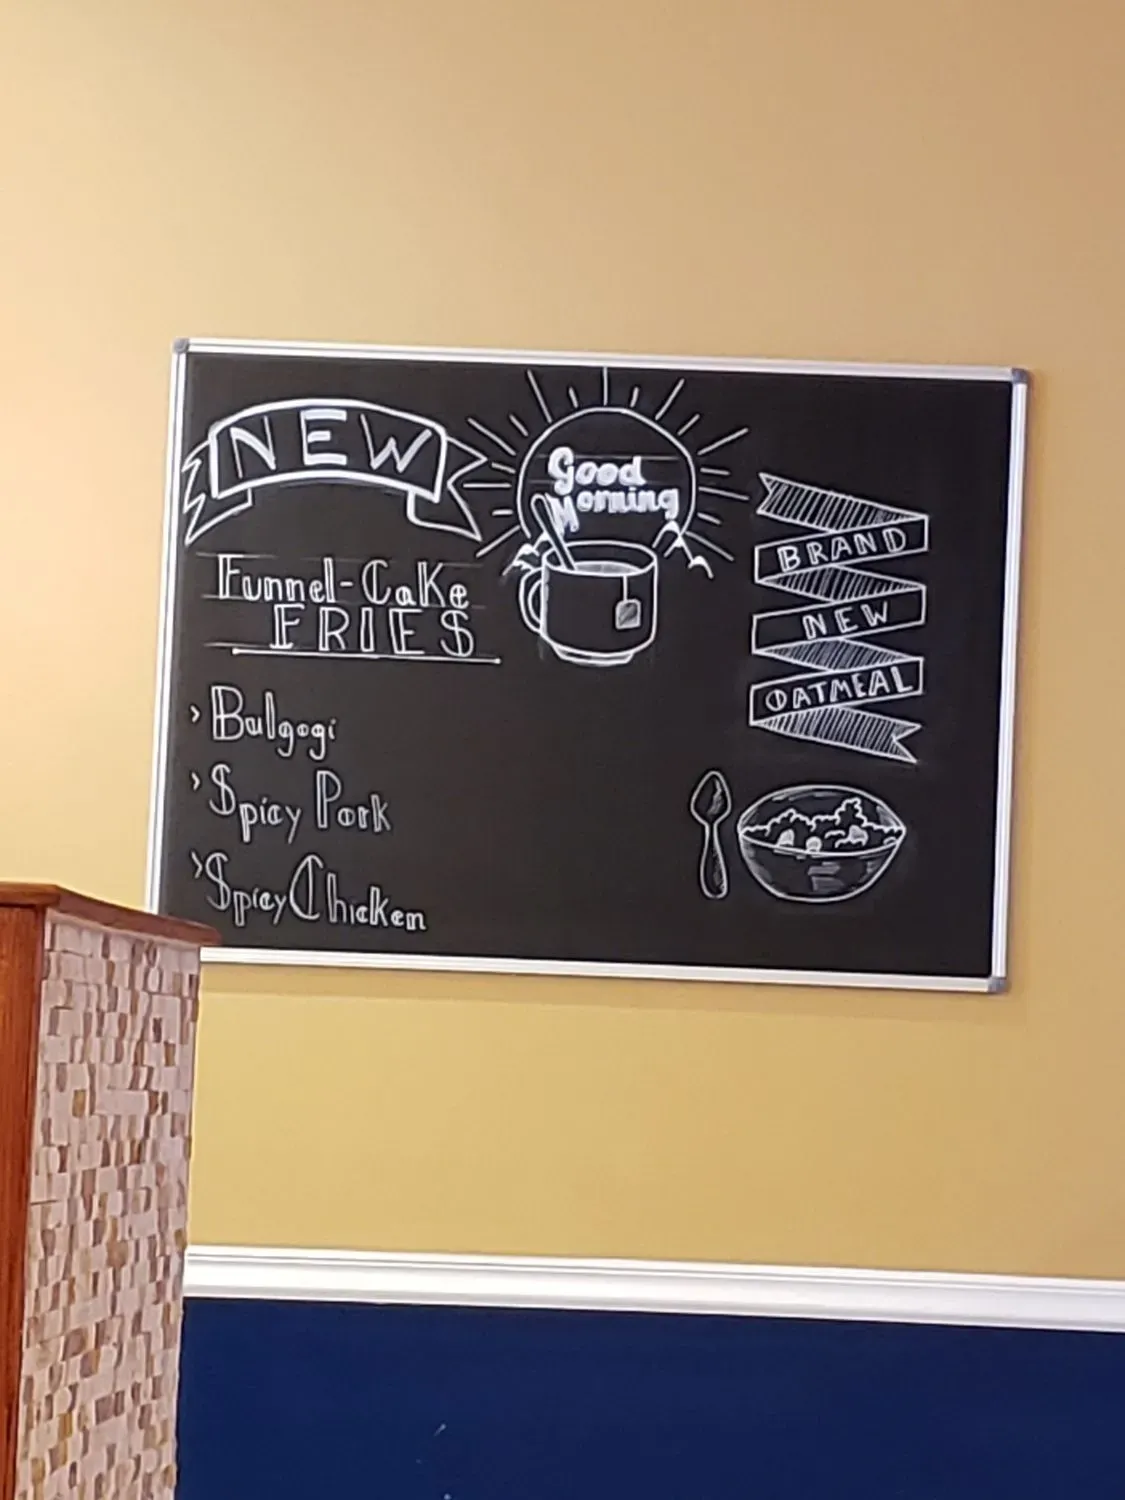 NEW
Funnel-Cake
FRIES
> Bulgogi
> Spicy Pork
> Spicy Chicken
Good
Morning
BRAND
NEW
OATMEAL